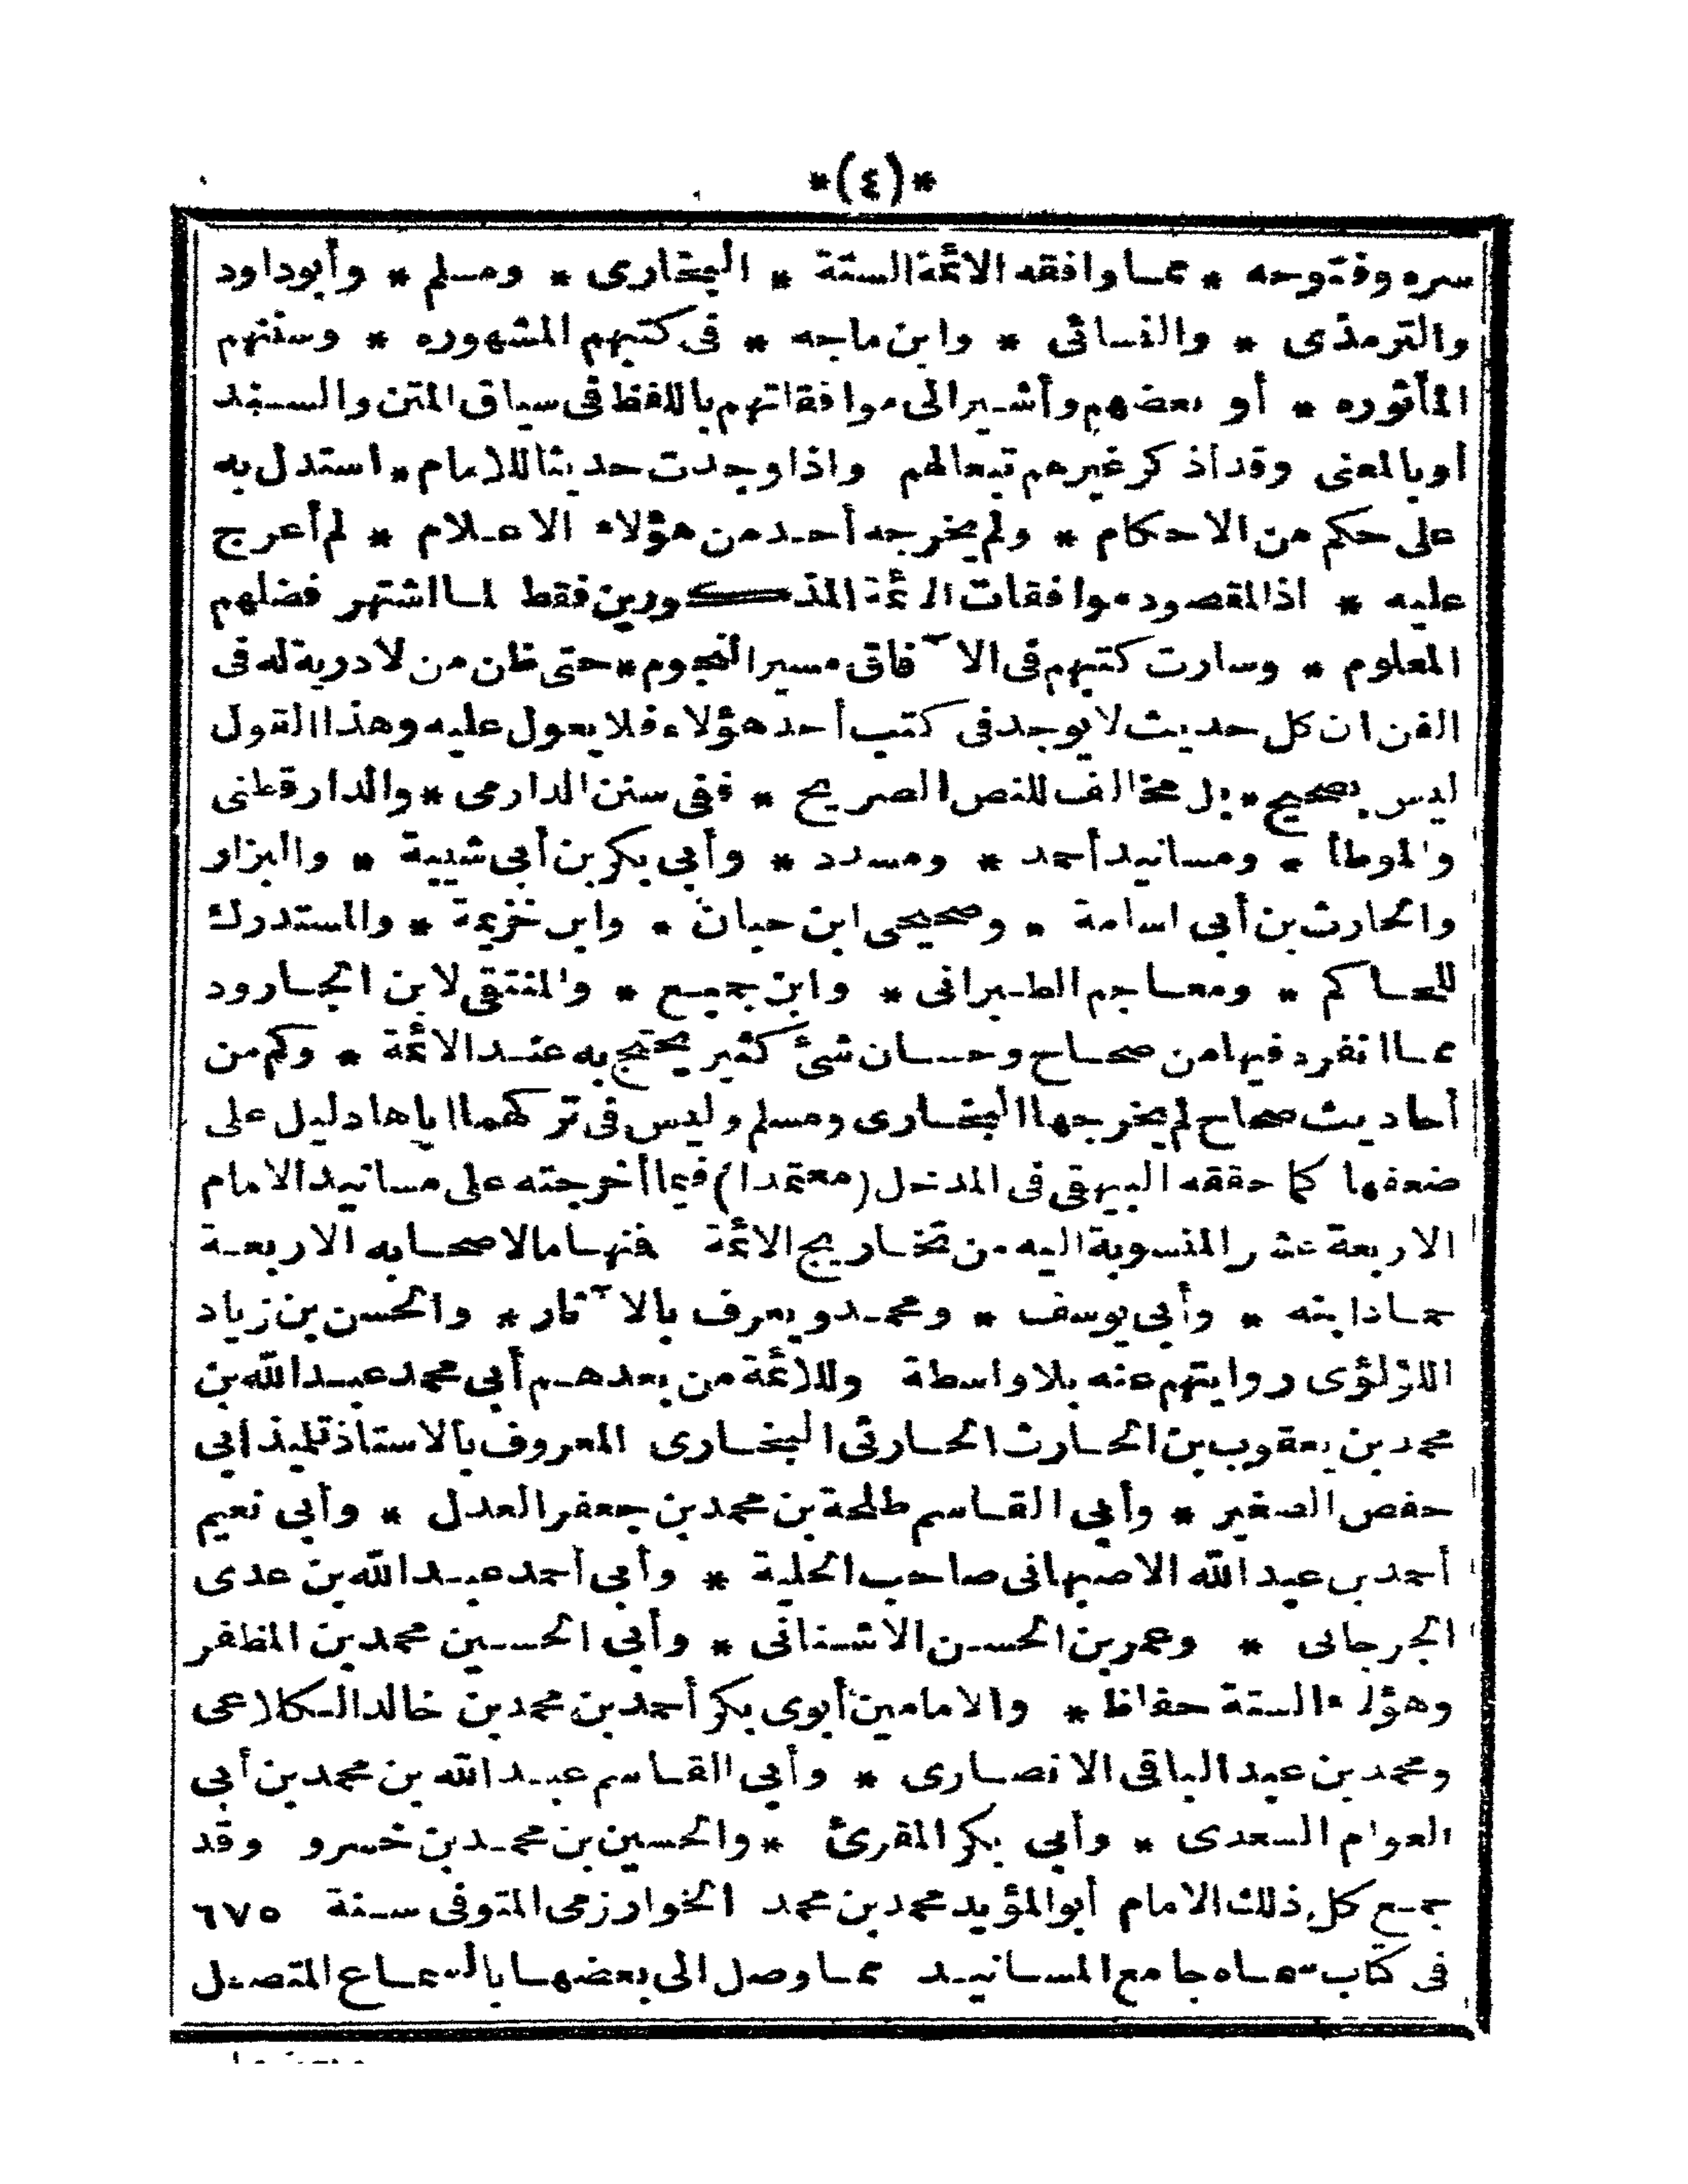 *(٤)*
سره وفتوحه * مما وافقه الائمة الستة * البخارى * ومسلم * وأبوداود
والترمذى * والنسائى * وابن ماجه * فى كتبهم المشهوره * وسننهم
المأثوره * أو بعضهم وأشير الى موافقاتهم باللفظ فى سياق المتن والسند
أو بالمعنى وقد أذكر غيرهم تبعا لهم واذا وجدت حديثا للامام * استدل به
على حكم من الاحكام * ولم يخرجه أحد من هؤلاء الاعلام * لم أعرج
عليه * اذ المقصود موافقات الائمة المذكورين فقط لما اشتهر فضلهم
المعلوم * وسارت كتبهم فى الآفاق مسير النجوم * حتى ظن من لا دربة له فى
الفن ان كل حديث لا يوجد فى كتب أحد هؤلاء فلا يعول عليه وهذا القول
ليس بصحيح * بل مخالف للنص الصريح * ففى سنن الدارمى * والدارقطنى
والموطأ * ومسانيد أحمد * ومسدد * وأبى بكر بن أبى شيبة * والبزار
والحارث بن أبى اسامة * وصحيحى ابن حبان * وابن خزيمة * والمستدرك
للحاكم * ومعاجم الطبرانى * وابن جميع * والمنتقى لابن الجارود
مما انفرد فيها من صحاح وحسان شئ كثير يحتج به عند الائمة * وكم من
أحاديث صحاح لم يخرجها البخارى ومسلم وليس فى تركهما اياها دليل على
ضعفها كما حققه البيهقى فى المدخل (معتمدا) فيما أخرجته على مسانيد الامام
الاربعة عشر المنسوبة اليه من تخاريج الائمة فنها ما لاصحابه الاربعة
حماد ابنه * وأبى يوسف * ومحمد ويعرف بالآثار * والحسن بن زياد
اللؤلؤى روايتهم عنه بلا واسطة وللائمة من بعدهم أبى محمد عبد الله بن
محمد بن يعقوب بن الحارث الحارثى البخارى المعروف بالاستاذ تلميذ أبى
حفص الصغير * وأبى القاسم طلحة بن محمد بن جعفر العدل * وأبى نعيم
أحمد بن عبد الله الاصبهانى صاحب الحلية * وأبى أحمد عبد الله بن عدى
الجرجانى * وعمر بن الحسن الاشنانى * وأبى الحسين محمد بن المظفر
وهؤلاء الستة حفاظ * والامامين أبوى بكر أحمد بن محمد بن خالد الكلاعى
ومحمد بن عبد الباقى الانصارى * وأبى القاسم عبد الله بن محمد بن أبى
العوام السعدى * وأبى بكر المقرئ * والحسين بن محمد بن خسرو وقد
جمع كل ذلك الامام أبو المؤيد محمد بن محمد الخوارزمى المتوفى سنة ٦٧٥
فى كتاب سماه جامع المسانيد مما وصل الى بعضها بالسماع المتصل